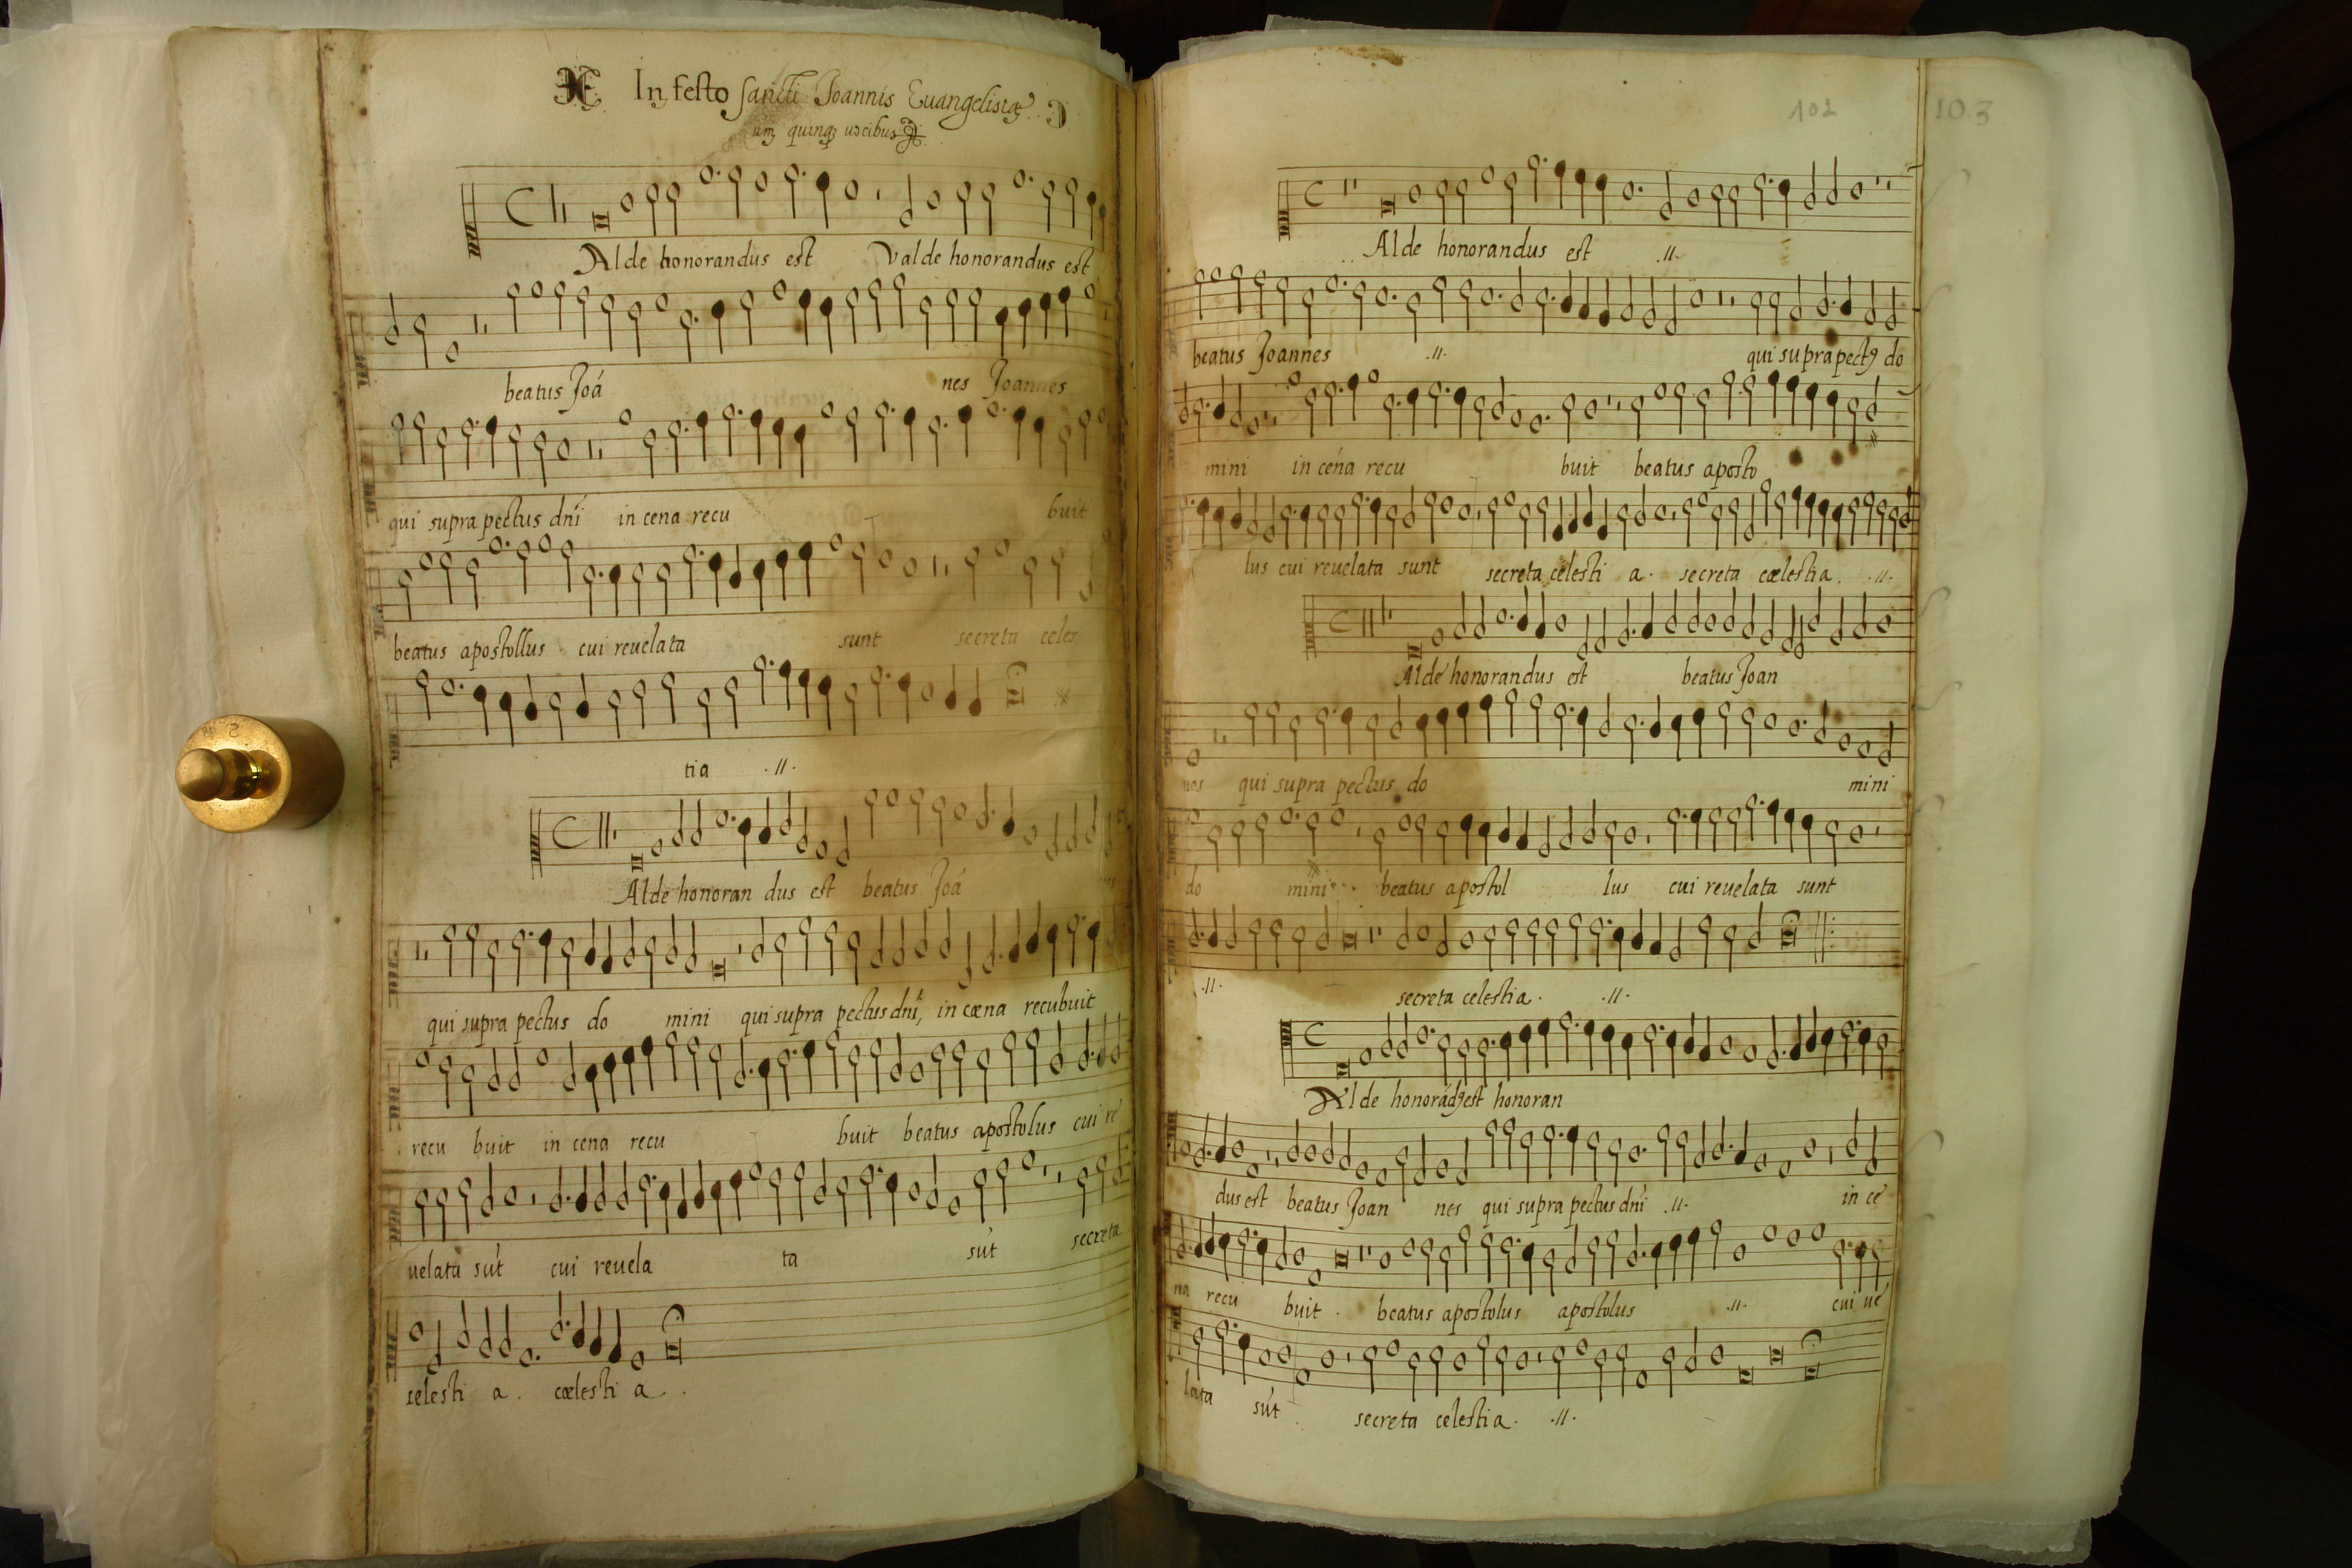 In festo sancti Joannis Euangelistę
quinqȝ uocibus
Alde honorandus est Valde honorandus est
beatus Joá nes Joannes
qui supra pectus dnī in cena recu buit
beatus apostollus cui reuelata sunt secreta celes
tia .//.
Alde honoran dus est beatus Joá nes
qui supra pectus do mini qui supra pectus dnī, in cæna recubuit
recu buit in cena recu buit beatus apostolus cui re
uelata sút cui reuela ta sút secreta
celesti a. cælesti a.
102 103
Alde honorandus est .//.
beatus Joannes .//. qui supra pectꝰ do
mini in cena recu buit beatus aposto
lus cui reuelata sunt secreta celesti a. secreta cælestia. .//.
Alde honorandus est beatus Joan
nes qui supra pectus do mini
do mini beatus apostol lus cui reuelata sunt
.//. secreta celestia. .//.
Alde honorádꝰ est honoran
dus est beatus Joan nes qui supra pectus dnī .//. in ce
na recu buit. beatus apostolus apostolus .//. cui ue
lata sút secreta celestia. .//.